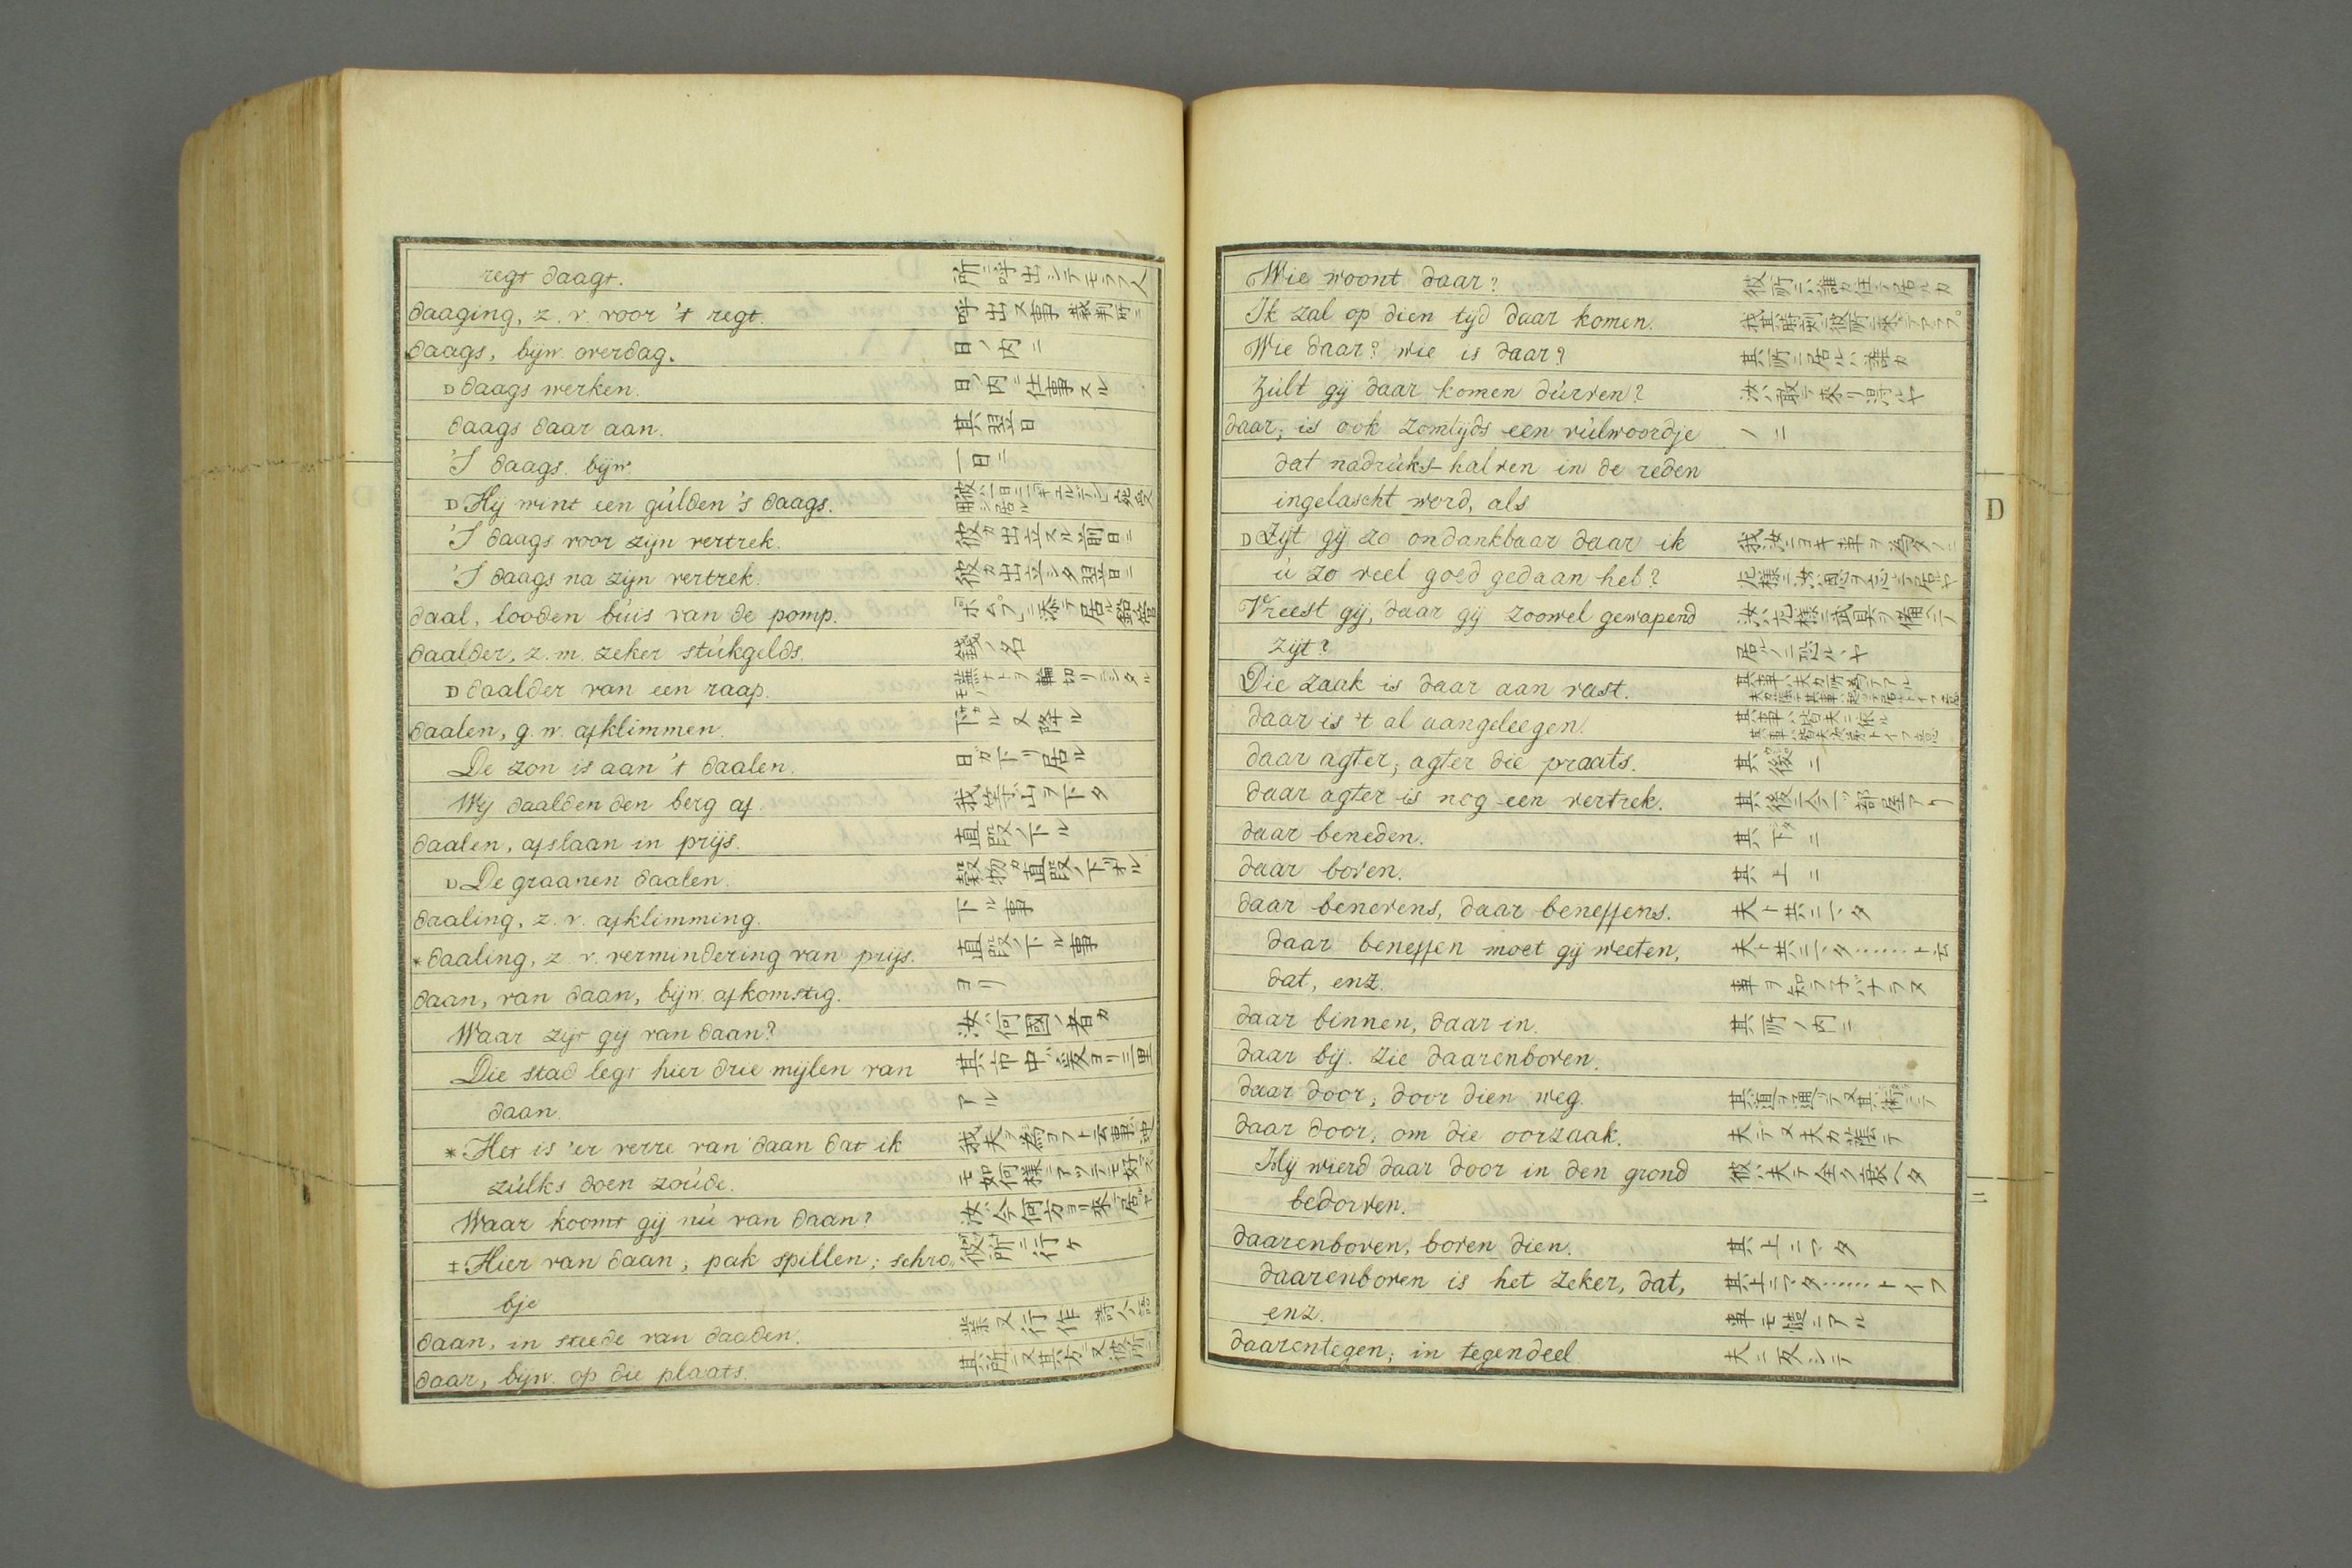 regt daagt. 所ニ呼出シテモラフ人
daaging, z. v. voor 't regt. 呼出ス事 裁判所ニ
daags, bijw. overdag. 日ノ内ニ
D daags werken. 日ノ内ニ仕事スル
daags daar aan. 其翌日
'S daags. bijw. 一日ニ
D Hij wint een gúlden 's daags.
'S daags voor zijn vertrek. 彼カ出立スル前日ニ
'S daags na zijn vertrek. 彼カ出立シタ翌日ニ
daal, looden búis van de pomp. 「ポムプ」ニ添テ居ル鉛管
daalder, z. m. zeker stúkgelds. 錢ノ名
D daalder van een raap. 蕪ナトヲ輪切リニシタルモノ
daalen, g. w. afklimmen. 下ル又降ル
De zon is aan 't daalen. 日カ下リ居ル
Wij daalden den berg af. 我等山ヲ下タ
daalen, afslaan in prijs. 直段ノ下ル
D De graanen daalen. 穀物カ直段ノ下ル
daaling, z. v. afklimming. 下ル事
* daaling, z. v. vermindering van prijs. 直段ノ下ル事
daan, van daan, bijw. afkomstig. ヨリ
Waar zijt gij van daan? 汝ハ何國ノ者カ
Die stad legt hier drie mijlen van 其市中ハ爰ヨリ三里
daan. アル
* Het is 'er verre van daan dat ik
zúlks doen zoúde.
Waar koomt gij nú van daan? 汝ハ今何方ヨリ來
‡ Hier van daan; pak spillen; schro„ 彼所ニ行ケ
bje
daan, in steede van daaden. 業又行作 詩人語
daar, bijw. op die plaats. 其所ニ又其方ニ又彼所ニ
Wie woont daar? 彼所ニハ誰カ住テ居ルカ
Ik zal op dien tijd daar komen. 我其時刻ニ彼所ニ來テアラフ
Wie daar? wie is daar? 其所ニ居ルハ誰カ
Zúlt gij daar komen dúrven? 汝ハ敢テ來リ得ルヤ
daar; is ook zomtijds een vúlwoordje ノニ
dat nadrúks-halven in de reden
ingelascht word, als
D Zijt gij zo ondankbaar daar ik 我汝ニヨキ事ヲ為タノニ
ú zo veel goed gedaan heb?
Vreest gij, daar gij zoowel gewapend
zijt? 居ルノニ恐ルヽヤ
Die zaak is daar aan vast.
daar is 't al aangeleegen.
daar agter; agter die praats. 其後ニ
daar agter is nog een vertrek. 其後ニ今一ツ部屋アリ
daar beneden. 其下ニ
daar boven. 其上ニ
daar benevens, daar beneffens. 夫ト共ニマタ
daar beneffen moet gij weeten, 夫ト共ニマタ……ト云
dat, enz. 事ヲ知ラ子バナラヌ
daar binnen, daar in. 其所ノ内ニ
daar bij. zie daarenboven.
daar door; door dien weg. 其道ヲ通ツテ又其術ニテ
daar door, om die oorzaak. 夫デ又夫カ故ニテ
Hij wierd daar door in den grond 彼ハ夫テ全ク衰ヘタ
bedorven.
daarenboven, boven dien. 其上ニマタ
daarenboven is het zeker, dat, 其上ニマタ……トイフ
enz. 事モ慥ニアル
daarentegen; in tegendeel 夫ニ反シテ
D
二